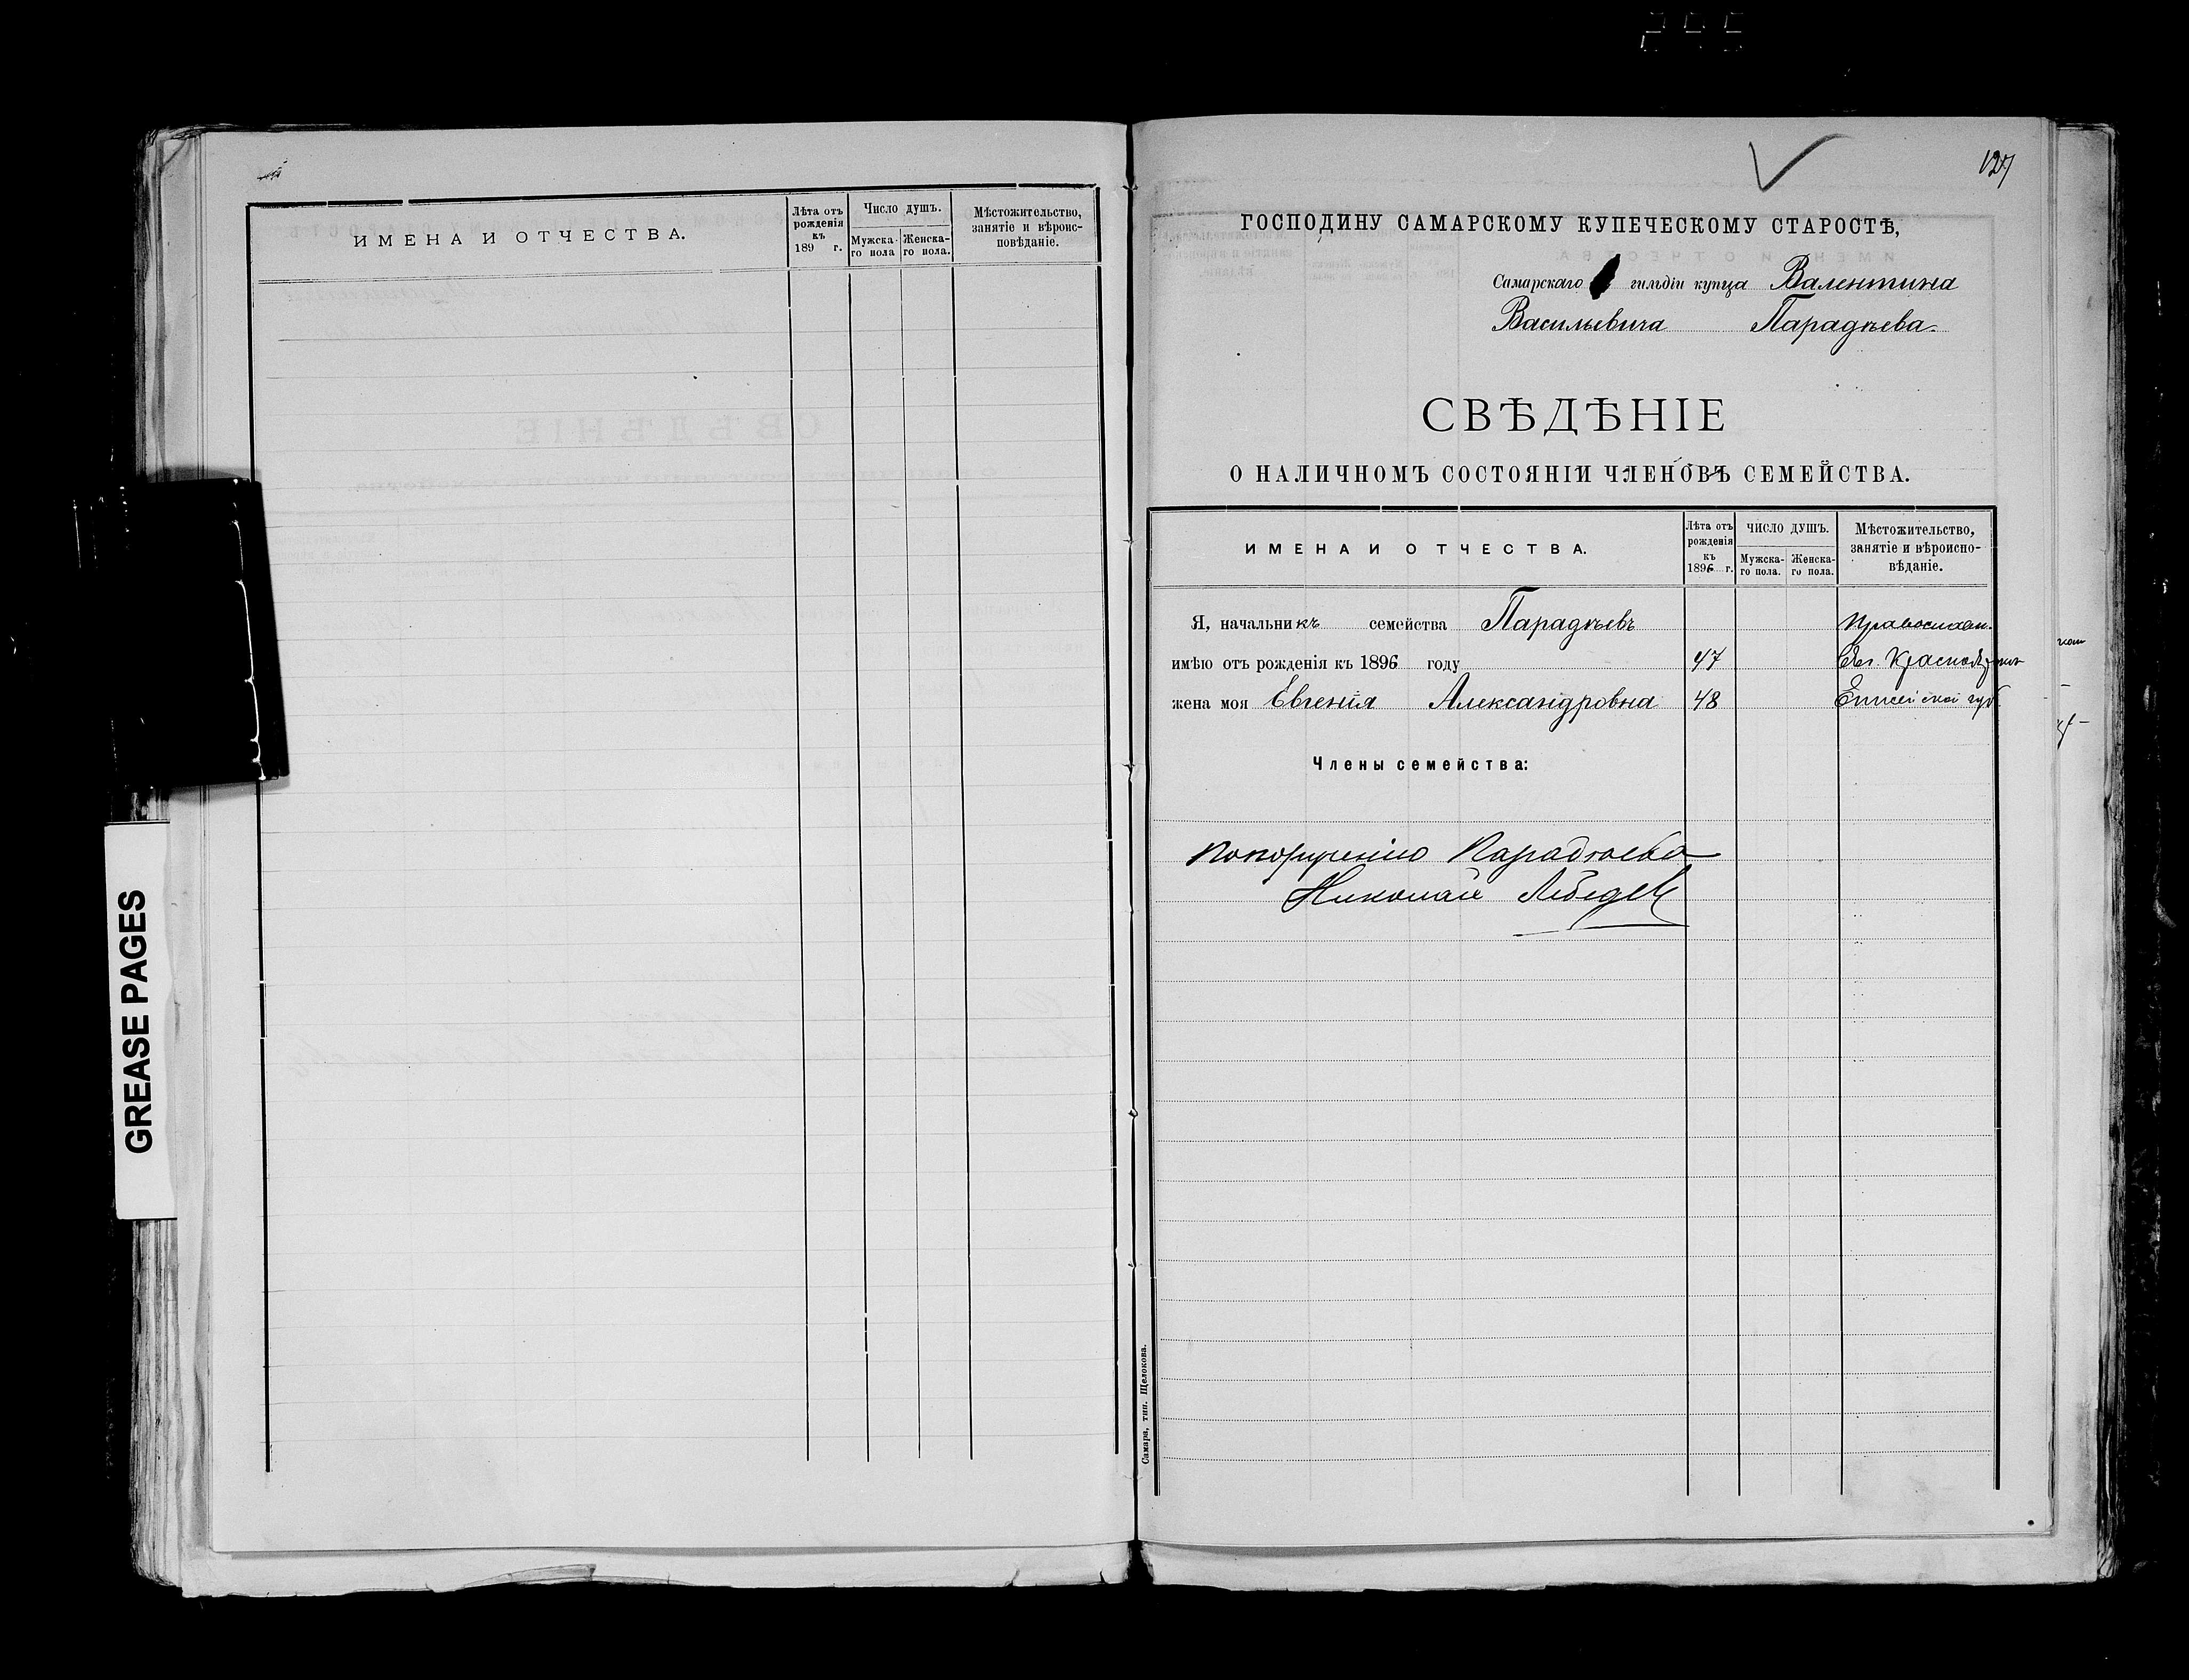 245
ИМЕНА И ОТЧЕСТВА.
Лѣта отъ рожденія къ 189 г.
Число душъ.
Мужска-го пола
Женска-го пола.
Мѣстожительство, занятіе и вѣроис-повѣданіе.
GREASE PAGES
127
ГОСПОДИНУ САМАРСКОМУ КУПЕЧЕСКОМУ СТАРОСТѢ,
Самарскаго гильдіи купца Валентина
Васильевича Парадѣева.
СВѢДѢНІЕ
О НАЛИЧНОМЪ СОСТОЯНІИ ЧЛЕНОВЪ СЕМЕЙСТВА.
ИМЕНА И ОТЧЕСТВА.
Лѣта отъ рожденія къ 1896 г.
ЧИСЛО ДУШЪ.
Мужска-го пола.
Женска-го пола.
Мѣстожительство, занятіе и вѣроиспо-вѣданіе.
Я, начальникъ семейства Парадѣевъ Православн.
имѣю отъ рожденія къ 1896 году 47
жена моя Евгенія Александровна 48 Енисейской губ.
Члены семейства:
По порученію Парадѣева
Николай Лебедев
Самара, тип. Щелокова.